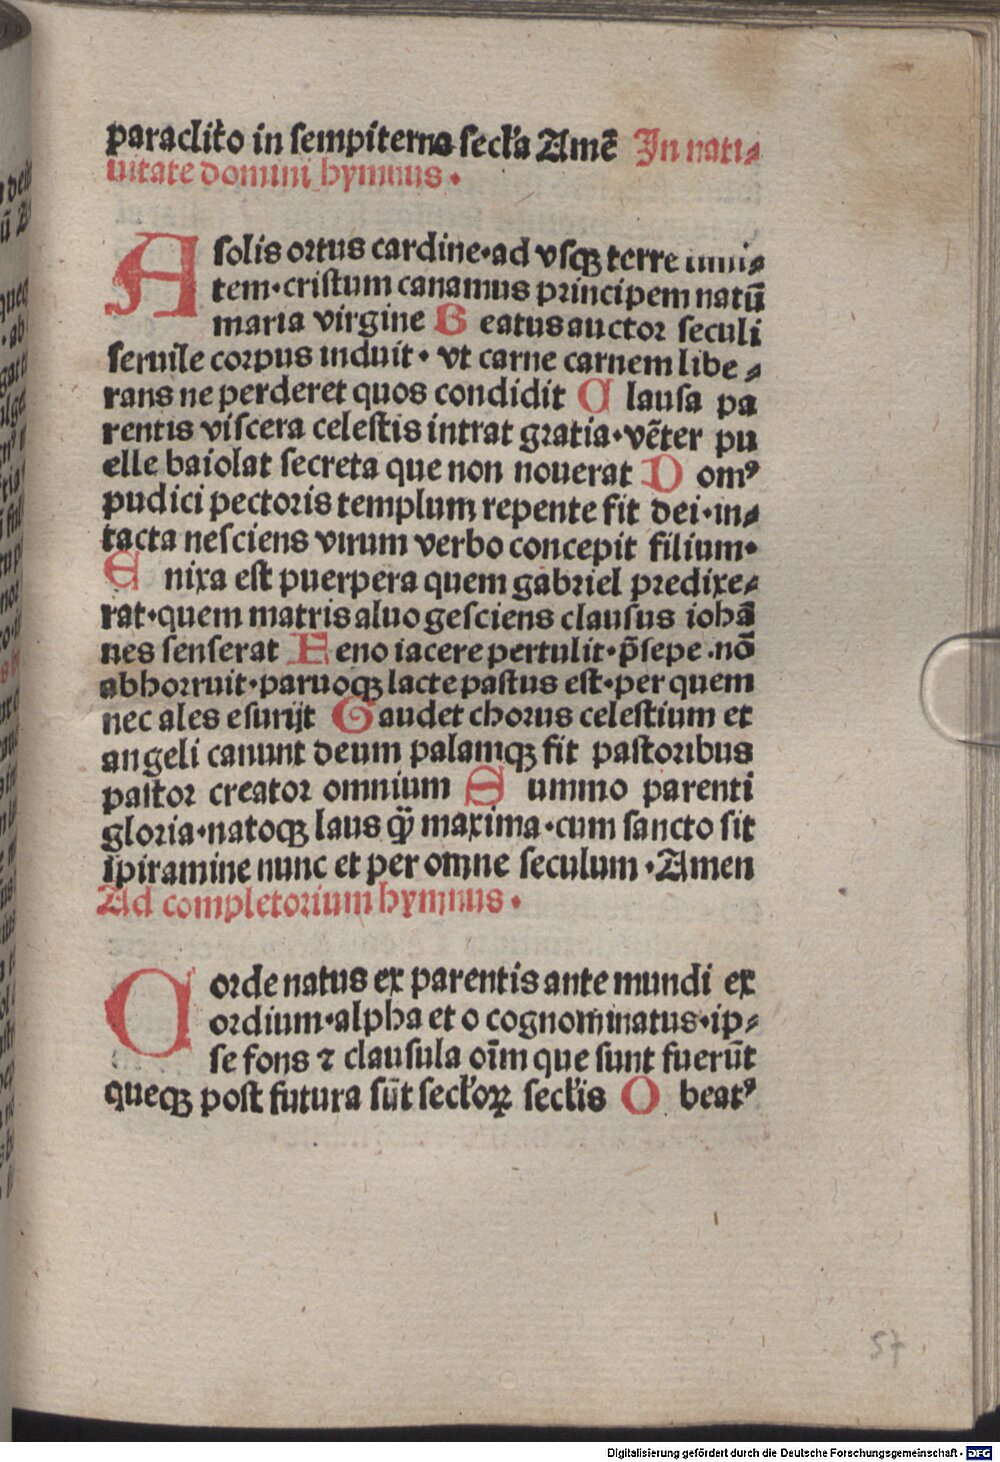 paraclito in sempiterna secl'a Amē In nati⸗
uitate domini hymnus ·
A solis ortus cardine · ad vsqꝫ terre limi⸗
tem · cristum canamus principem natū
maria virgine B eatus auctor seculi
seruile corpus induit · vt carne carnem libe⸗
rans ne perderet quos condidit C lausa pa
rentis viscera celestis intrat gratia · vēter pu
elle baiolat secreta que non nouerat D omꝰ
pudici pectoris templum repente fit dei · in⸗
tacta nesciens virum verbo concepit filium ·
E nixa est puerpera quem gabriel predixe⸗
rat · quem matris aluo gesciens clausus iohā
nes senserat F eno iacere pertulit · p̄sepe · nō
abhorruit · paruoqꝫ lacte pastus est · per quem
nec ales esurijt G audet chorus celestium et
angeli canunt deum palamqꝫ fit pastoribus
pastor creator omnium S ummo parenti
gloria · natoqꝫ laus q̄ꝫ maxima · cum sancto sit
spiramine nunc et per omne seculum · Amen
Ad completorium hymnus ·
C orde natus ex parentis ante mundi ex
ordium · alpha et o cognominatus · ip⸗
se fons ⁊ clausula oīm que sunt fuerūt
queqꝫ post futura sūt secl'oꝝ secl'is O beatꝰ
57
Digitalisierung gefördert durch die Deutsche Forschungsgemeinschaft - DFG